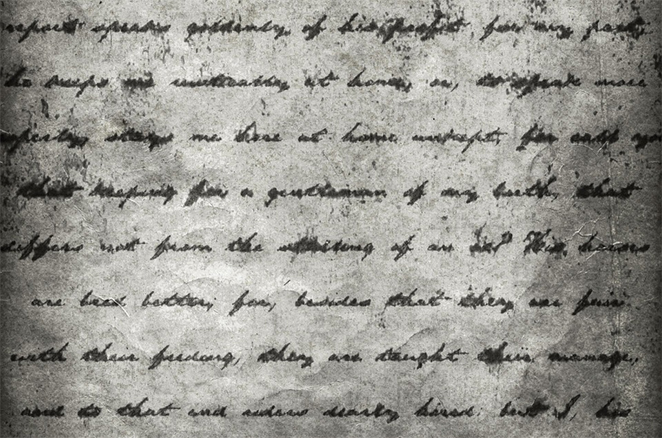 report speaks goldenly of his profit; for my part,
he keeps me rustically at home, or, to speak more
properly, stays me here at home unkept; for call you
that keeping for a gentleman of my birth, that
differs not from the stalling of an ox? His horses
are bred better; for, besides that they are fair
with their feeding, they are taught their manage,
and to that end riders dearly hired: but I, his